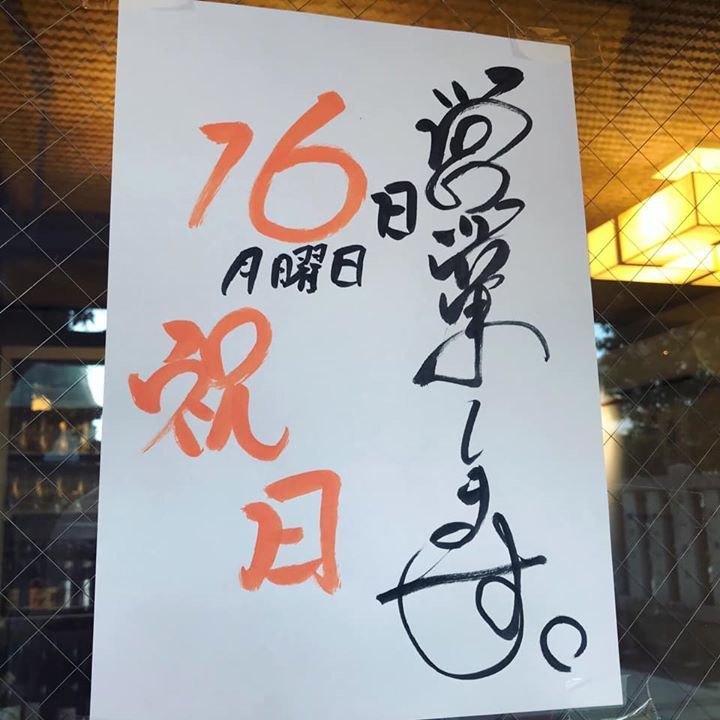 16日
月曜日
祝日
営業します。